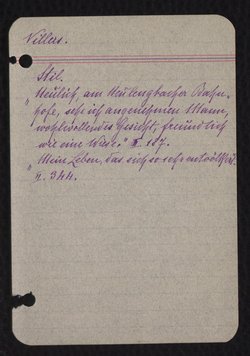 Villers.
Stil.
„Neulich, am Neulengbacher Bahn-
hofe, seh' ich angenehmen Mann,
wohlwollendes Gesicht, freundlich
wie eine Wiese." II. 157.
„Mein Leben, das sich so sehr entvölkert"
II. 344.